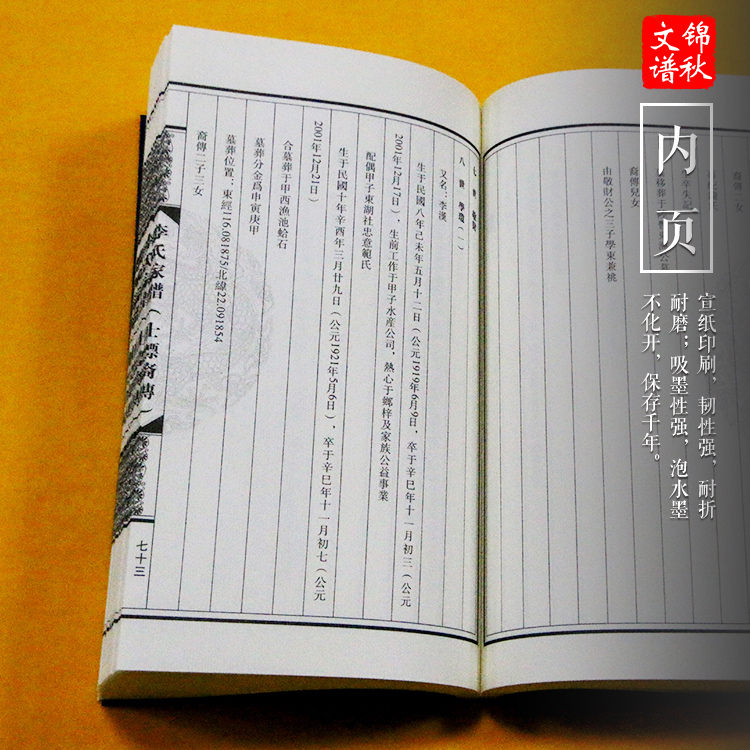 锦秋
文谱
内页
宣纸印刷，韧性强，耐折
耐磨；吸墨性强，泡水墨
不化开，保存千年。
裔傳二女
生卒失記
移葬于
裔傳兒女
由敬財公之三子學東兼祧
七世
八世 學（一）
又名：李漢
生于民國八年己未年五月十二日（公元1919年6月9日，卒于辛巳年十一月初三（公元
2001年12月17日），生前工作于甲子水産公司，熱心于鄉梓及家族公益事業
配偶甲子東湖社忠意範氏
生于民國十年辛酉年三月廿九日（公元1921年5月6日），卒于辛巳年十一月初七（公元
2001年12月21日）
合墓葬于甲西漁池蛤石
墓葬分金爲申寅庚甲
墓葬位置：東經116.081875北緯22.091854
裔傳二子三女
李氏家譜（士標裔傳）
七十三